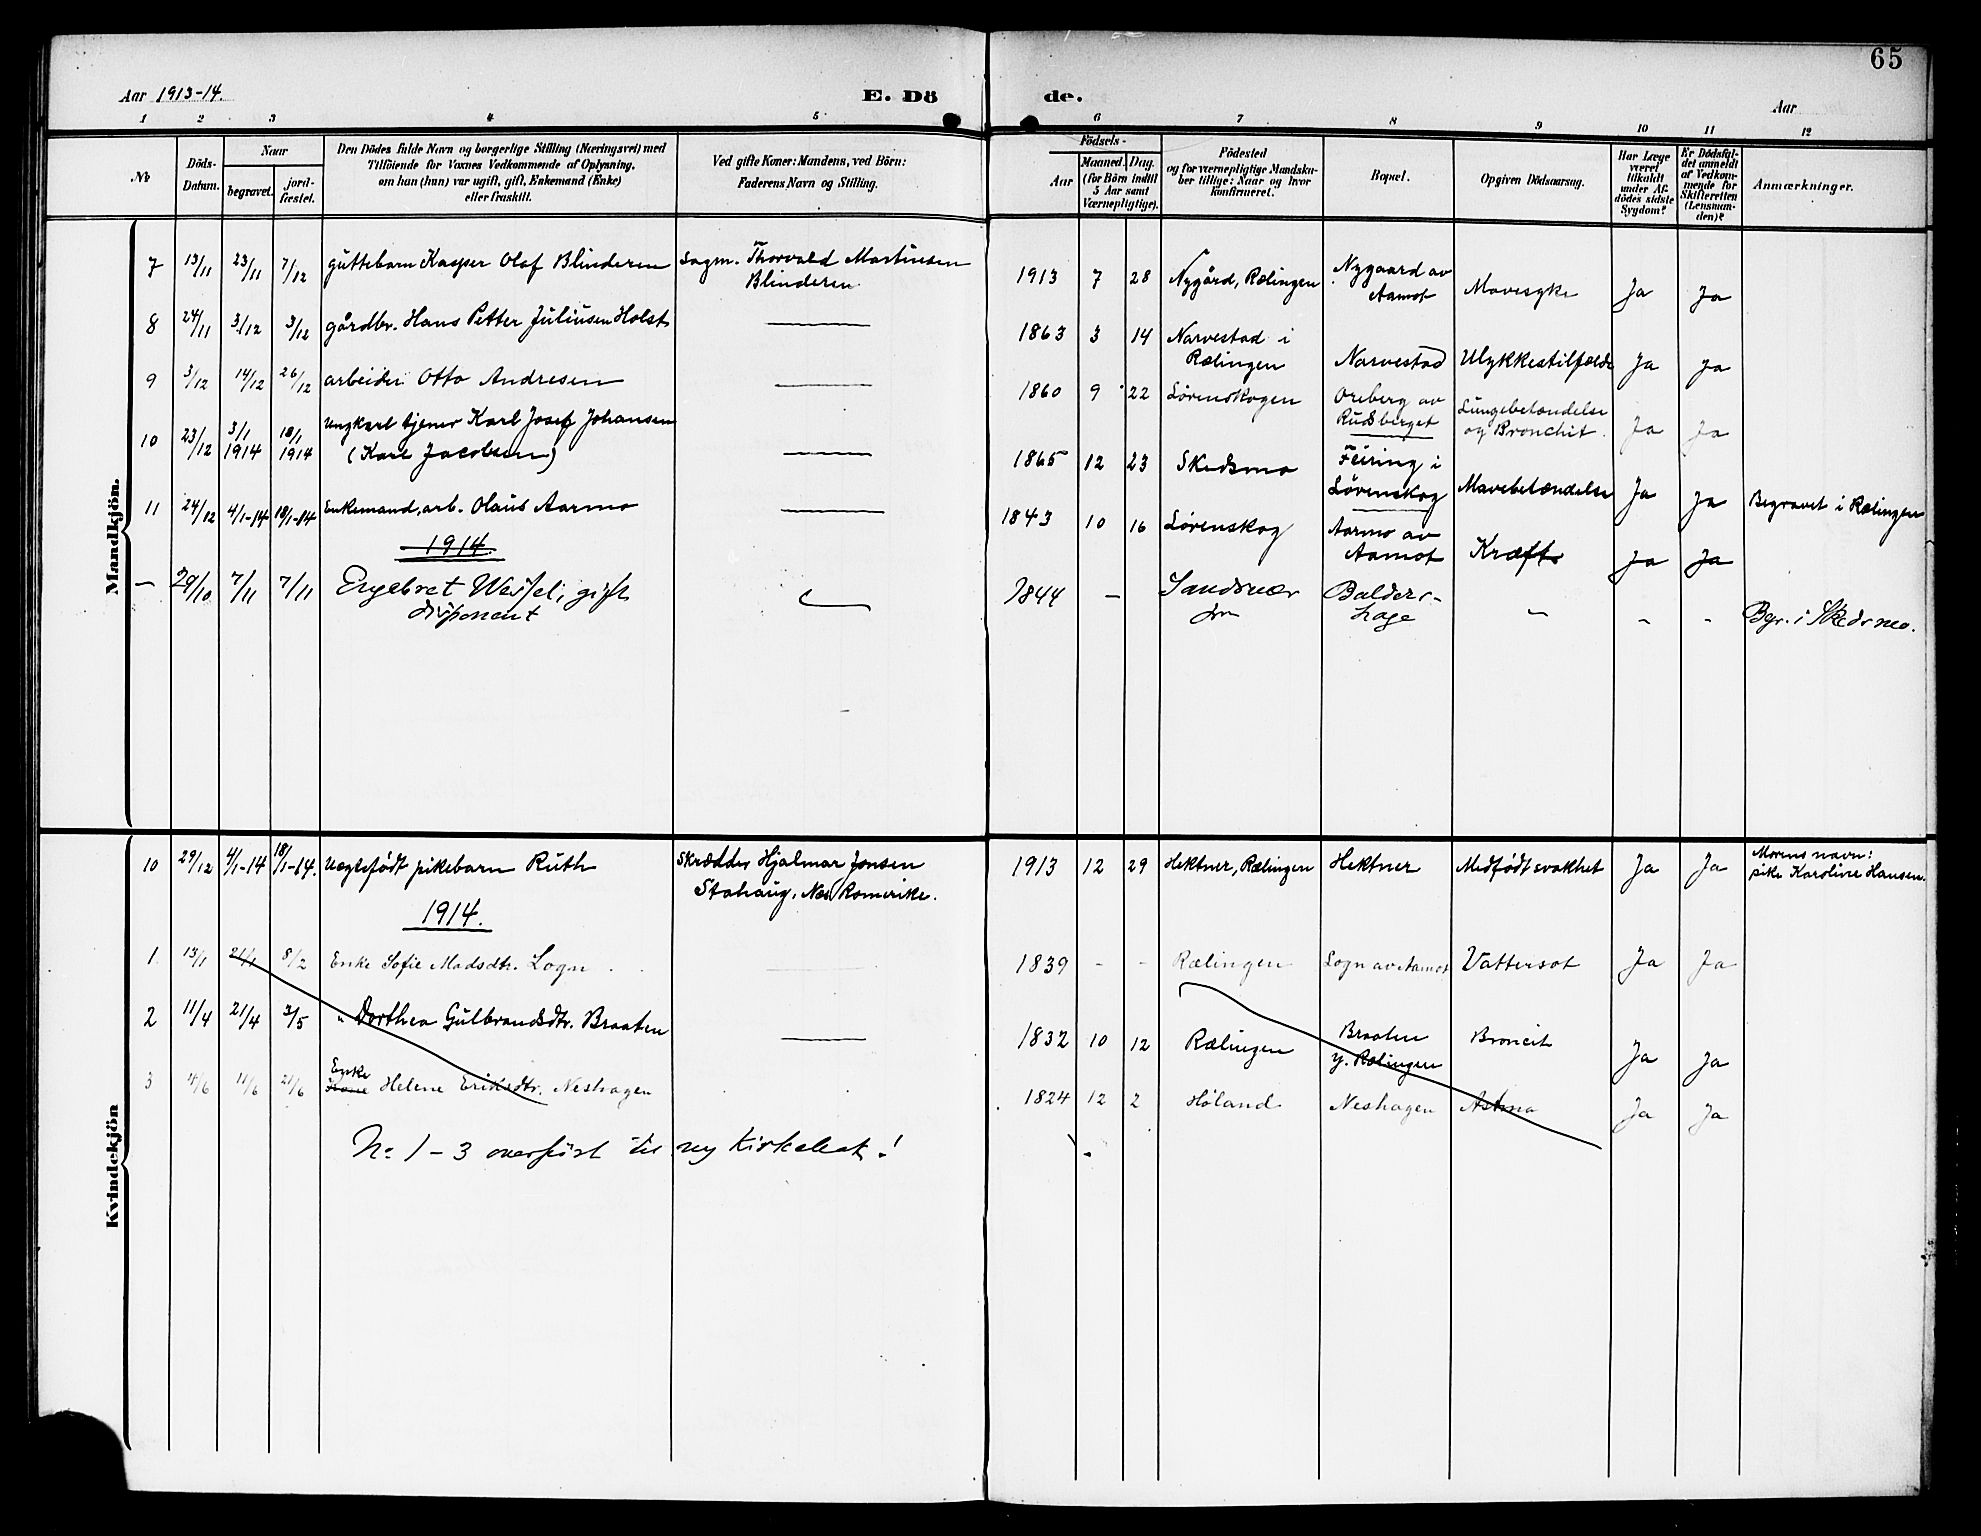 65
Aar 1913-14.
E. Dö
de.
Aar
1 2 3 4 5
6 7 8 9 10 11 12
No
Döds-Datum.
Naar
begravet.
jord-fæstet.
Den Dödes fulde Navn og borgerlige Stilling (Næringsvei) med
Tilföiende for Voxnes Vedkommende af Oplysning,
om han (hun) var ugift, gift, Enkemand (Enke)
eller fraskilt.
Ved gifte Koner: Mandens, ved Börn:
Faderens Navn og Stilling.
Födsels-
Aar
Maaned. Dag.
(for Börn indtil
5 Aar samt
Værnepligtige).
Födested
og for værnepligtige Mandska-
ber tillige: Naar og hvor
konfirmeret.
Bopæl.
Opgiven Dödsaarsag.
Har Læge
været
tilkaldt
under Af-
dödes sidste
Sygdom?
Er Dödsfal-
det anmeldt
af Vedkom-
mende for
Skifteretten
(Lensman-
den)?
Anmærkninger.
Mandkjön.
7 13/11 23/11 7/12 guttebarn Kasper Olaf Blinderen sagm. Thorvald Martinsen
Blinderen
1913 7 28 Nygård, Rælingen Nygaard av
Aamot Mavesyke Ja Ja
8 24/11 3/12 3/12 gårdbr. Hans Petter Juliusen Holst
1863 3 14 Narvestad i
Rælingen Narvestad Ulykkestilfælde Ja Ja
9 3/12 14/12 26/12 arbeider Otto Andresen
1860 9 22 Lørenskogen Oreberg av
Rudsberget Lungebetændelse
og Bronchit. Ja Ja
10 23/12 3/1 1914 18/1 1914 ungkarl tjener Karl Josef Johansen
(Karl Jacobsen)
1865 12 23 Skedsmo Feiring i
Lørenskog Mavebetændelse Ja Ja Begravet i Rælingen
11 24/12 4/1-14 18/1-14 Enkemand, arb. Olaus Aarmo
1843 10 16 Lørenskog Aarmo av
Aamot Kræft Ja Ja
1914.
– 29/10 7/11 7/11 Engebret Wessel, gift
disponent
1844 – Sandsvær
Balders-
hage – – – Begr. i Skedsmo.
Kvindekjön
10 29/12 4/1-14 18/1-14. Uægtefödt pikebarn Ruth Skrædder Hjalmar Jonsen
Stahaug, Nes Romerike.
1913 12 29 Hektner, Rælingen Hektner Medfödt svakhet Ja Ja Morens navn:
pike Karoline Hansen.
1914.
1. 13/1 21/1 8/2 Enke Sofie Madsdtr. Logn
1839 - - Rælingen Logn av Aamot Vattersot Ja Ja
2 11/4 21/4 3/5 " Dorthea Gulbrandsdtr. Braaten
1832 10 12 Rælingen Braaten
y. Rælingen Broncit Ja Ja
3 4/6 11/6 21/6 Enke
Kone Helene Eriksdtr. Neshagen
1824 12 2 Høland Neshagen Astma Ja Ja
No 1 – 3 overført til ny kirkebok!